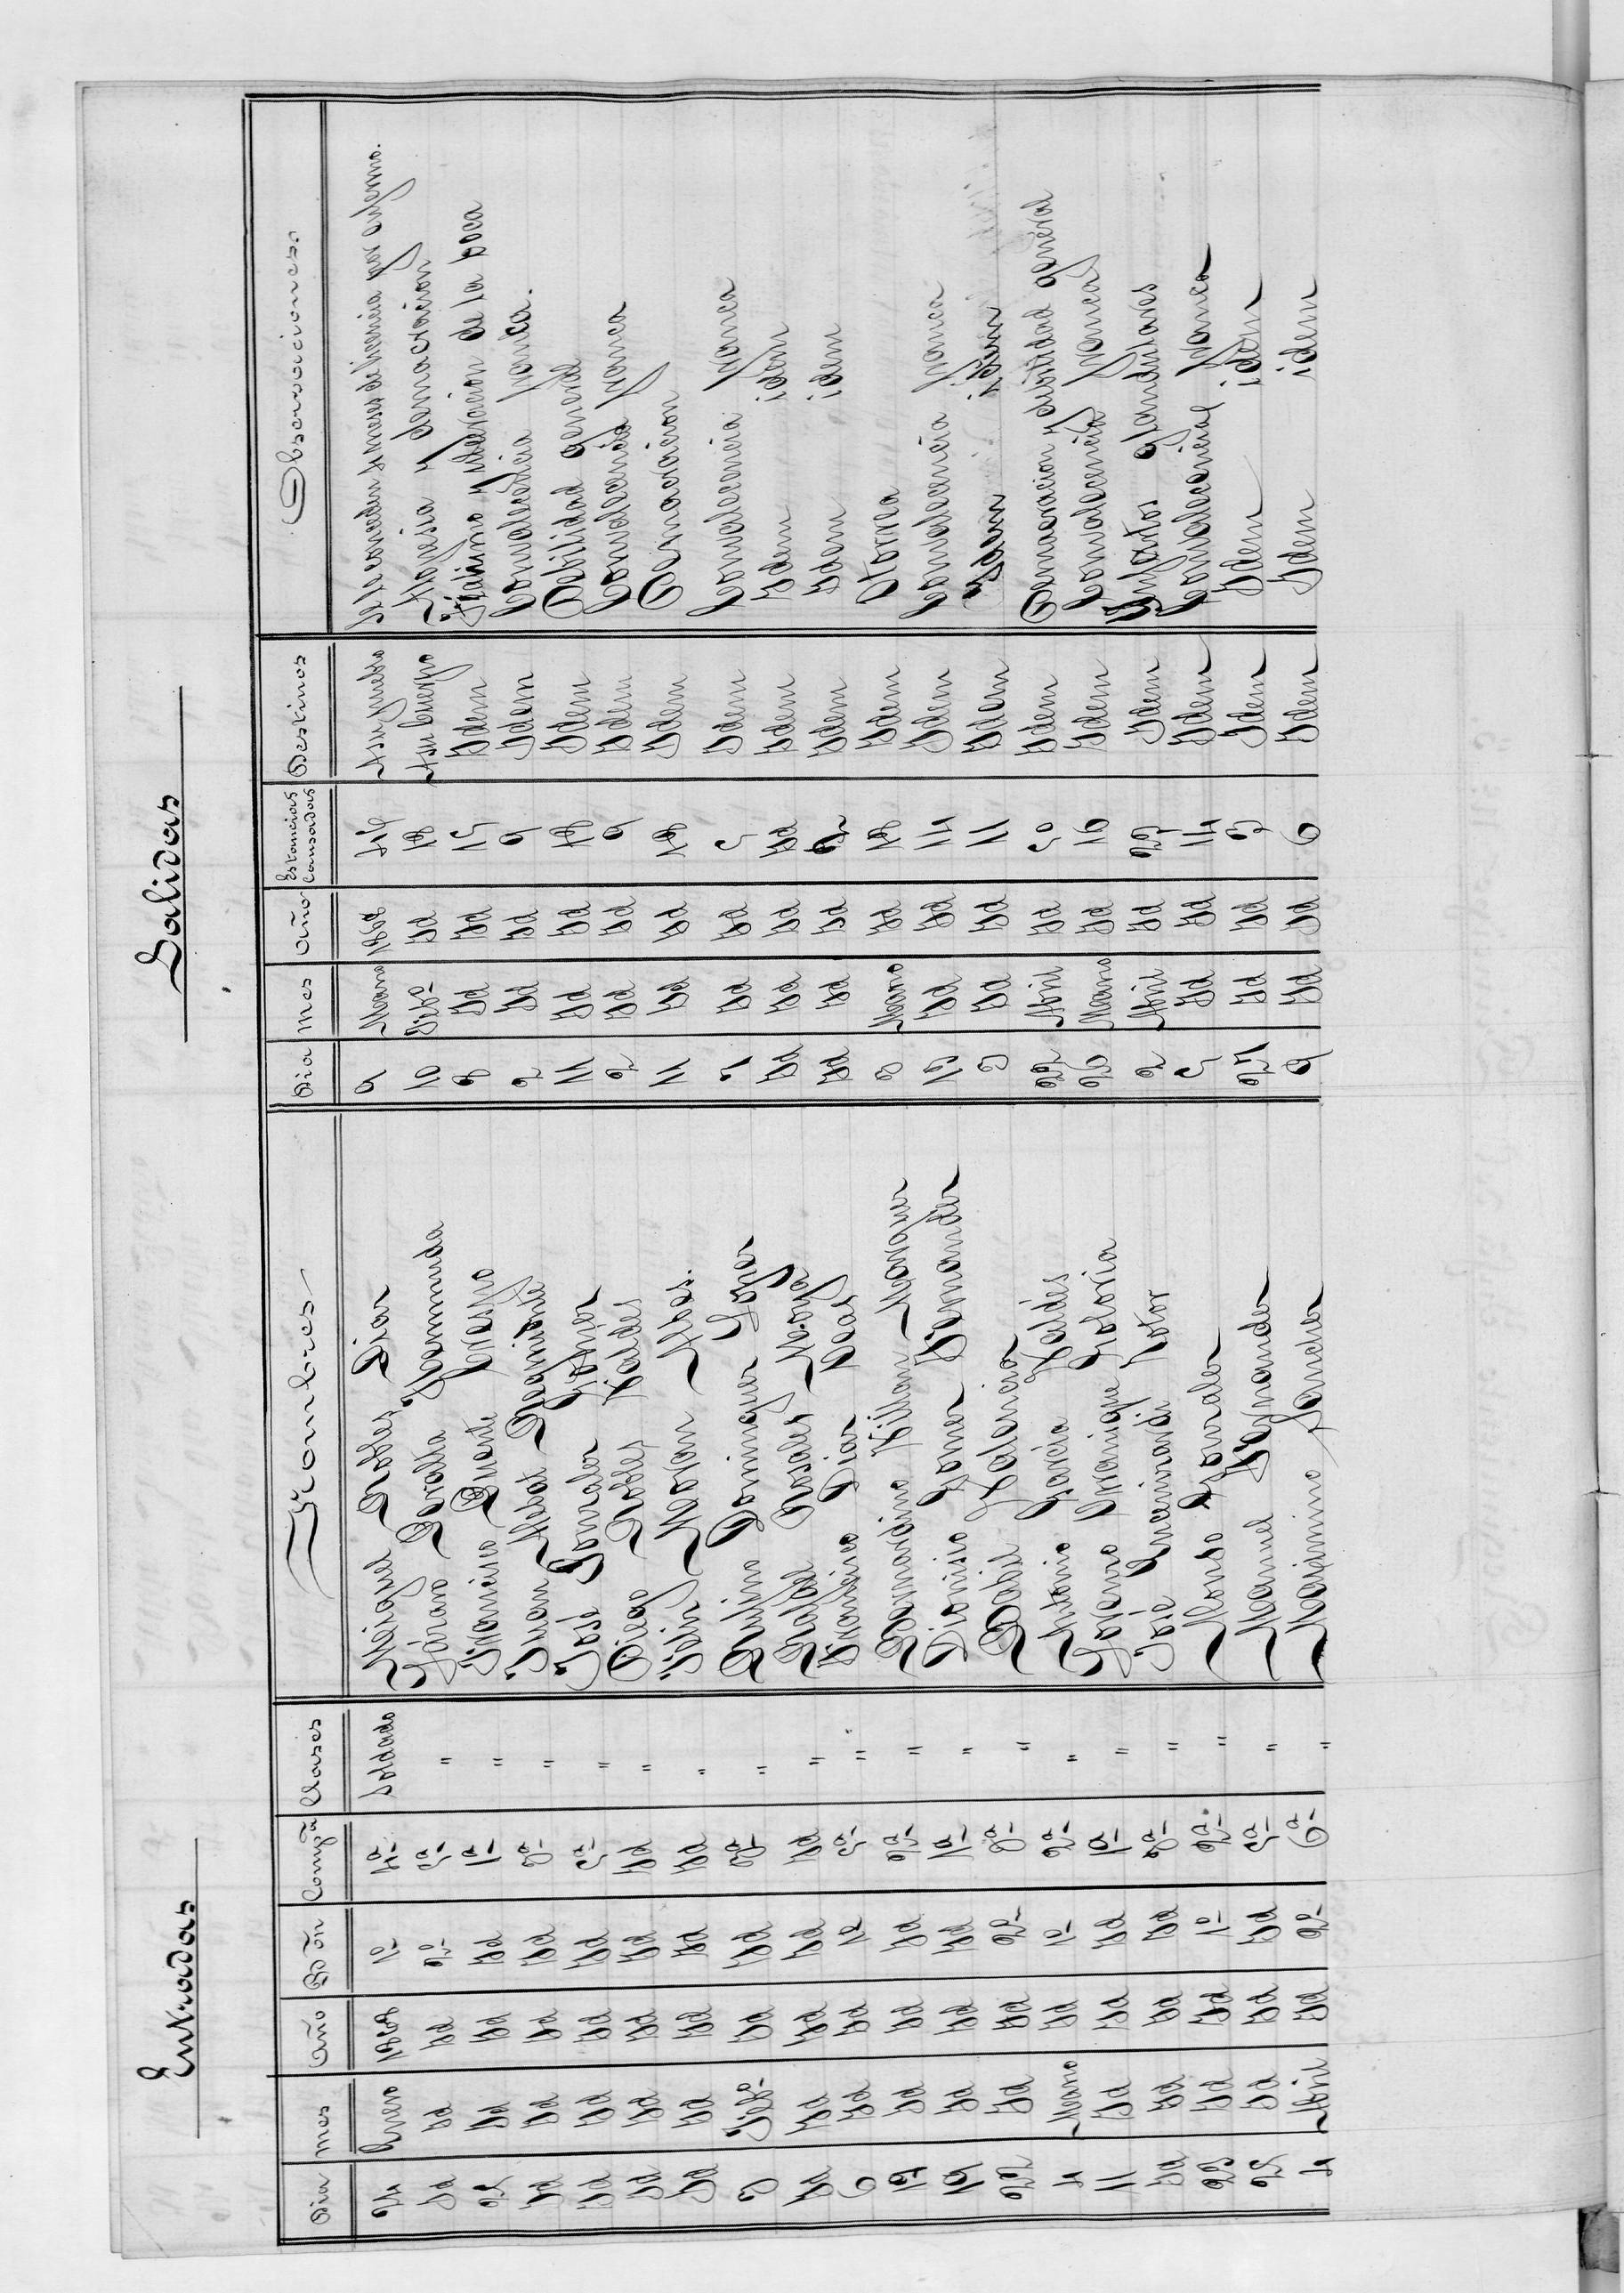 Entradas Salidas
Dia mes año Bōn Compª Clases Nombres Dia mes año Estancias Causadas Destinos Observaciones
24 Enero 1868 1º 4ª Soldado Miguel Robles Diaz 9 Marzo 1868 A su pueblo Se le conceden 4 meses de licencia por enfermo.
Id Id Id 2º 5ª " Peralta 10 Febº Id 18 A su cuerpo y demacracion
25 Id Id Id 1ª " Francisco Puente Crespo 8 Id Id 15 Idem de la boca
Id Id Id Id 3ª " Juan Abad 2 Id Id 9 Idem Convalecencia franca.
Id Id Id Id 5ª " José Gonzalez 11 Id Id 18 Idem Debilidad general
Id Id Id Id Id " Diego Robles Valdes 2 Id Id 9 Idem Convalecencia franca
Id Id Id Id Id " Felix Moran 11 Id Id 18 Idem Demacracion
3 Febº Id Id 3ª " Rufino Dominguez 7 Id Id 5 Idem Convalecencia franca
Id Id Id Id Id " Rafael Rosales Id Id Id Id Idem Idem idem
6 Id Id 1º 5ª " Francisco Diaz Id Id Id 2 Idem Idem idem
19 Id Id Id 2ª " Bernardino Killman 8 Marzo Id 18 Idem Otorrea
19 Id Id Id 1ª " Dionisio Fernandez 13 Id Id Idem Convalecencia franca
22 Id Id 2º 3ª " Rafael 3 Id Id 11 Idem Idem idem
4 Marzo Id 1º 2ª " Antonio Garcia Valdés 22 Abril Id 50 Idem Demacracion y debilidad general
11 Id Id Id 1ª " 29 Marzo Id 19 Idem Convalecencia franca
Id Id Id Id 3ª " José Encarnacion 2 Abril Id 23 Idem Infartos glandulares
23 Id Id 1º 2ª " Alonso 5 Id Id Idem Convalecencia franca
25 Id Id Id 5ª " Manuel Fernandez 21 Id Id Idem Idem idem
4 Abril Id 2º 6ª " Maximino Sanchez 9 Id Id 6 Idem Idem idem